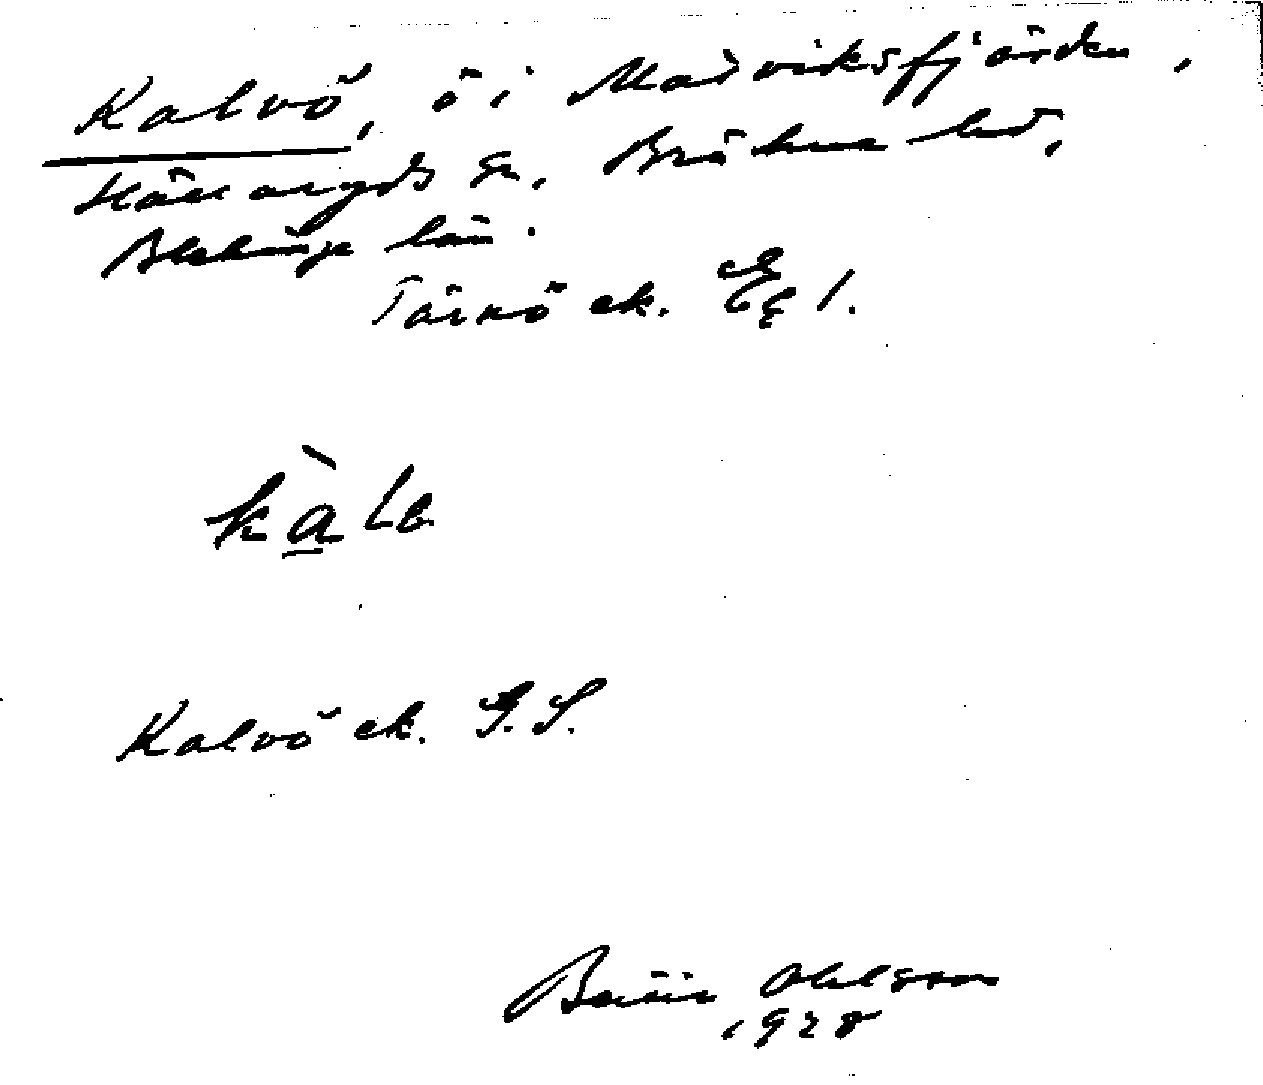 Kalvö, ö i Matviksfjärden,
Hällaryds sn. Bräkne hd,
Blekinge län.
Tärnö ek.
Kalvö ek. G.S.
Ohlsson
1928